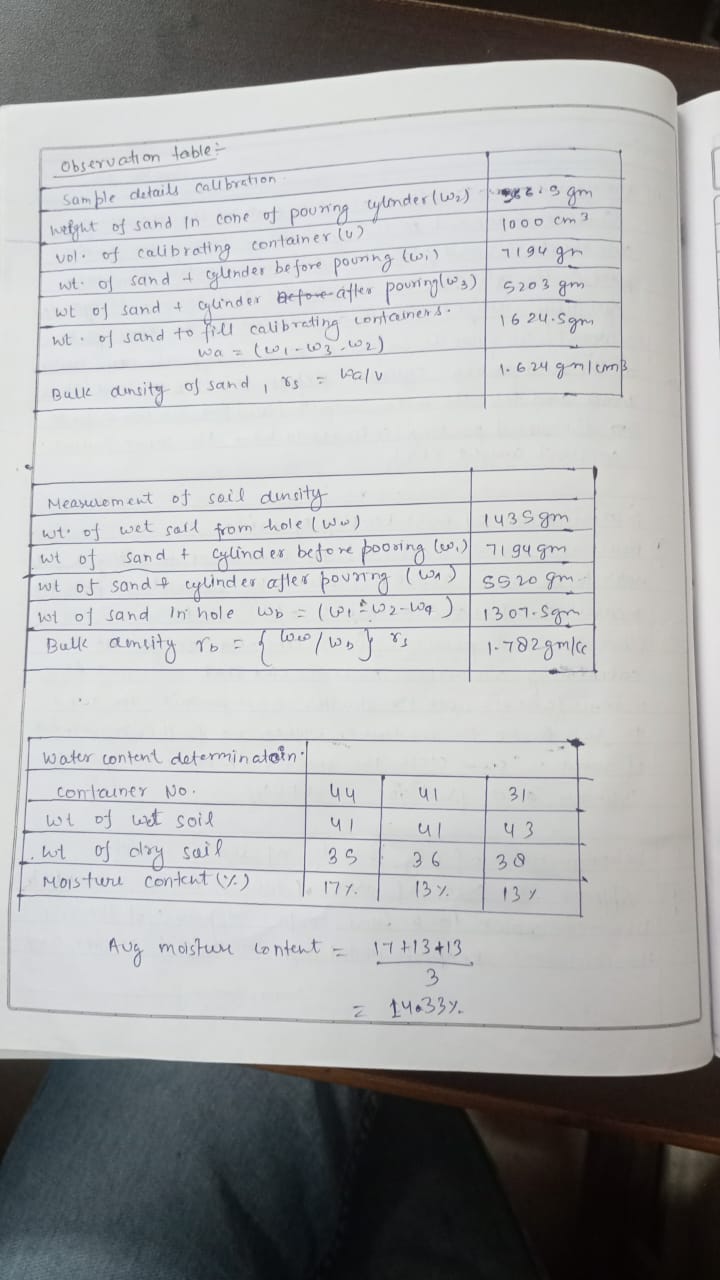 Observation table:-
Sample details calibration.
weight of sand In cone of pouring cylinder (w2) gm
vol. of calibrating container (v) 1000 cm3
wt. of sand + cylinder before pouring (w1) 7194 gm
wt of sand + cylinder after pouring (w3) 5203 gm
wt. of sand to fill calibrating containers. 1624.5gm
wa = (w1-w3-w2)
Bulk density of sand, rs = wa/v 1.624 gm/cm3
Measurement of soil density
wt. of wet soil from hole (Ww) 1435gm
wt of sand + cylinder before pooring (w1) 7194gm
wt of sand + cylinder after pouring (w4) 5520 gm
wt of sand In hole Wb = (w1-w2-w4) 1307.5gm
Bulk density rb = { Ww/Wb } rs 1.782gm/cc
Water content determination.
Container No. 44 41 31
wt of wet soil 41 41 43
wt of dry soil 35 36 38
Moisture content (%) 17% 13% 13%
Avg moisture content = 17+13+13
3
= 14.33%